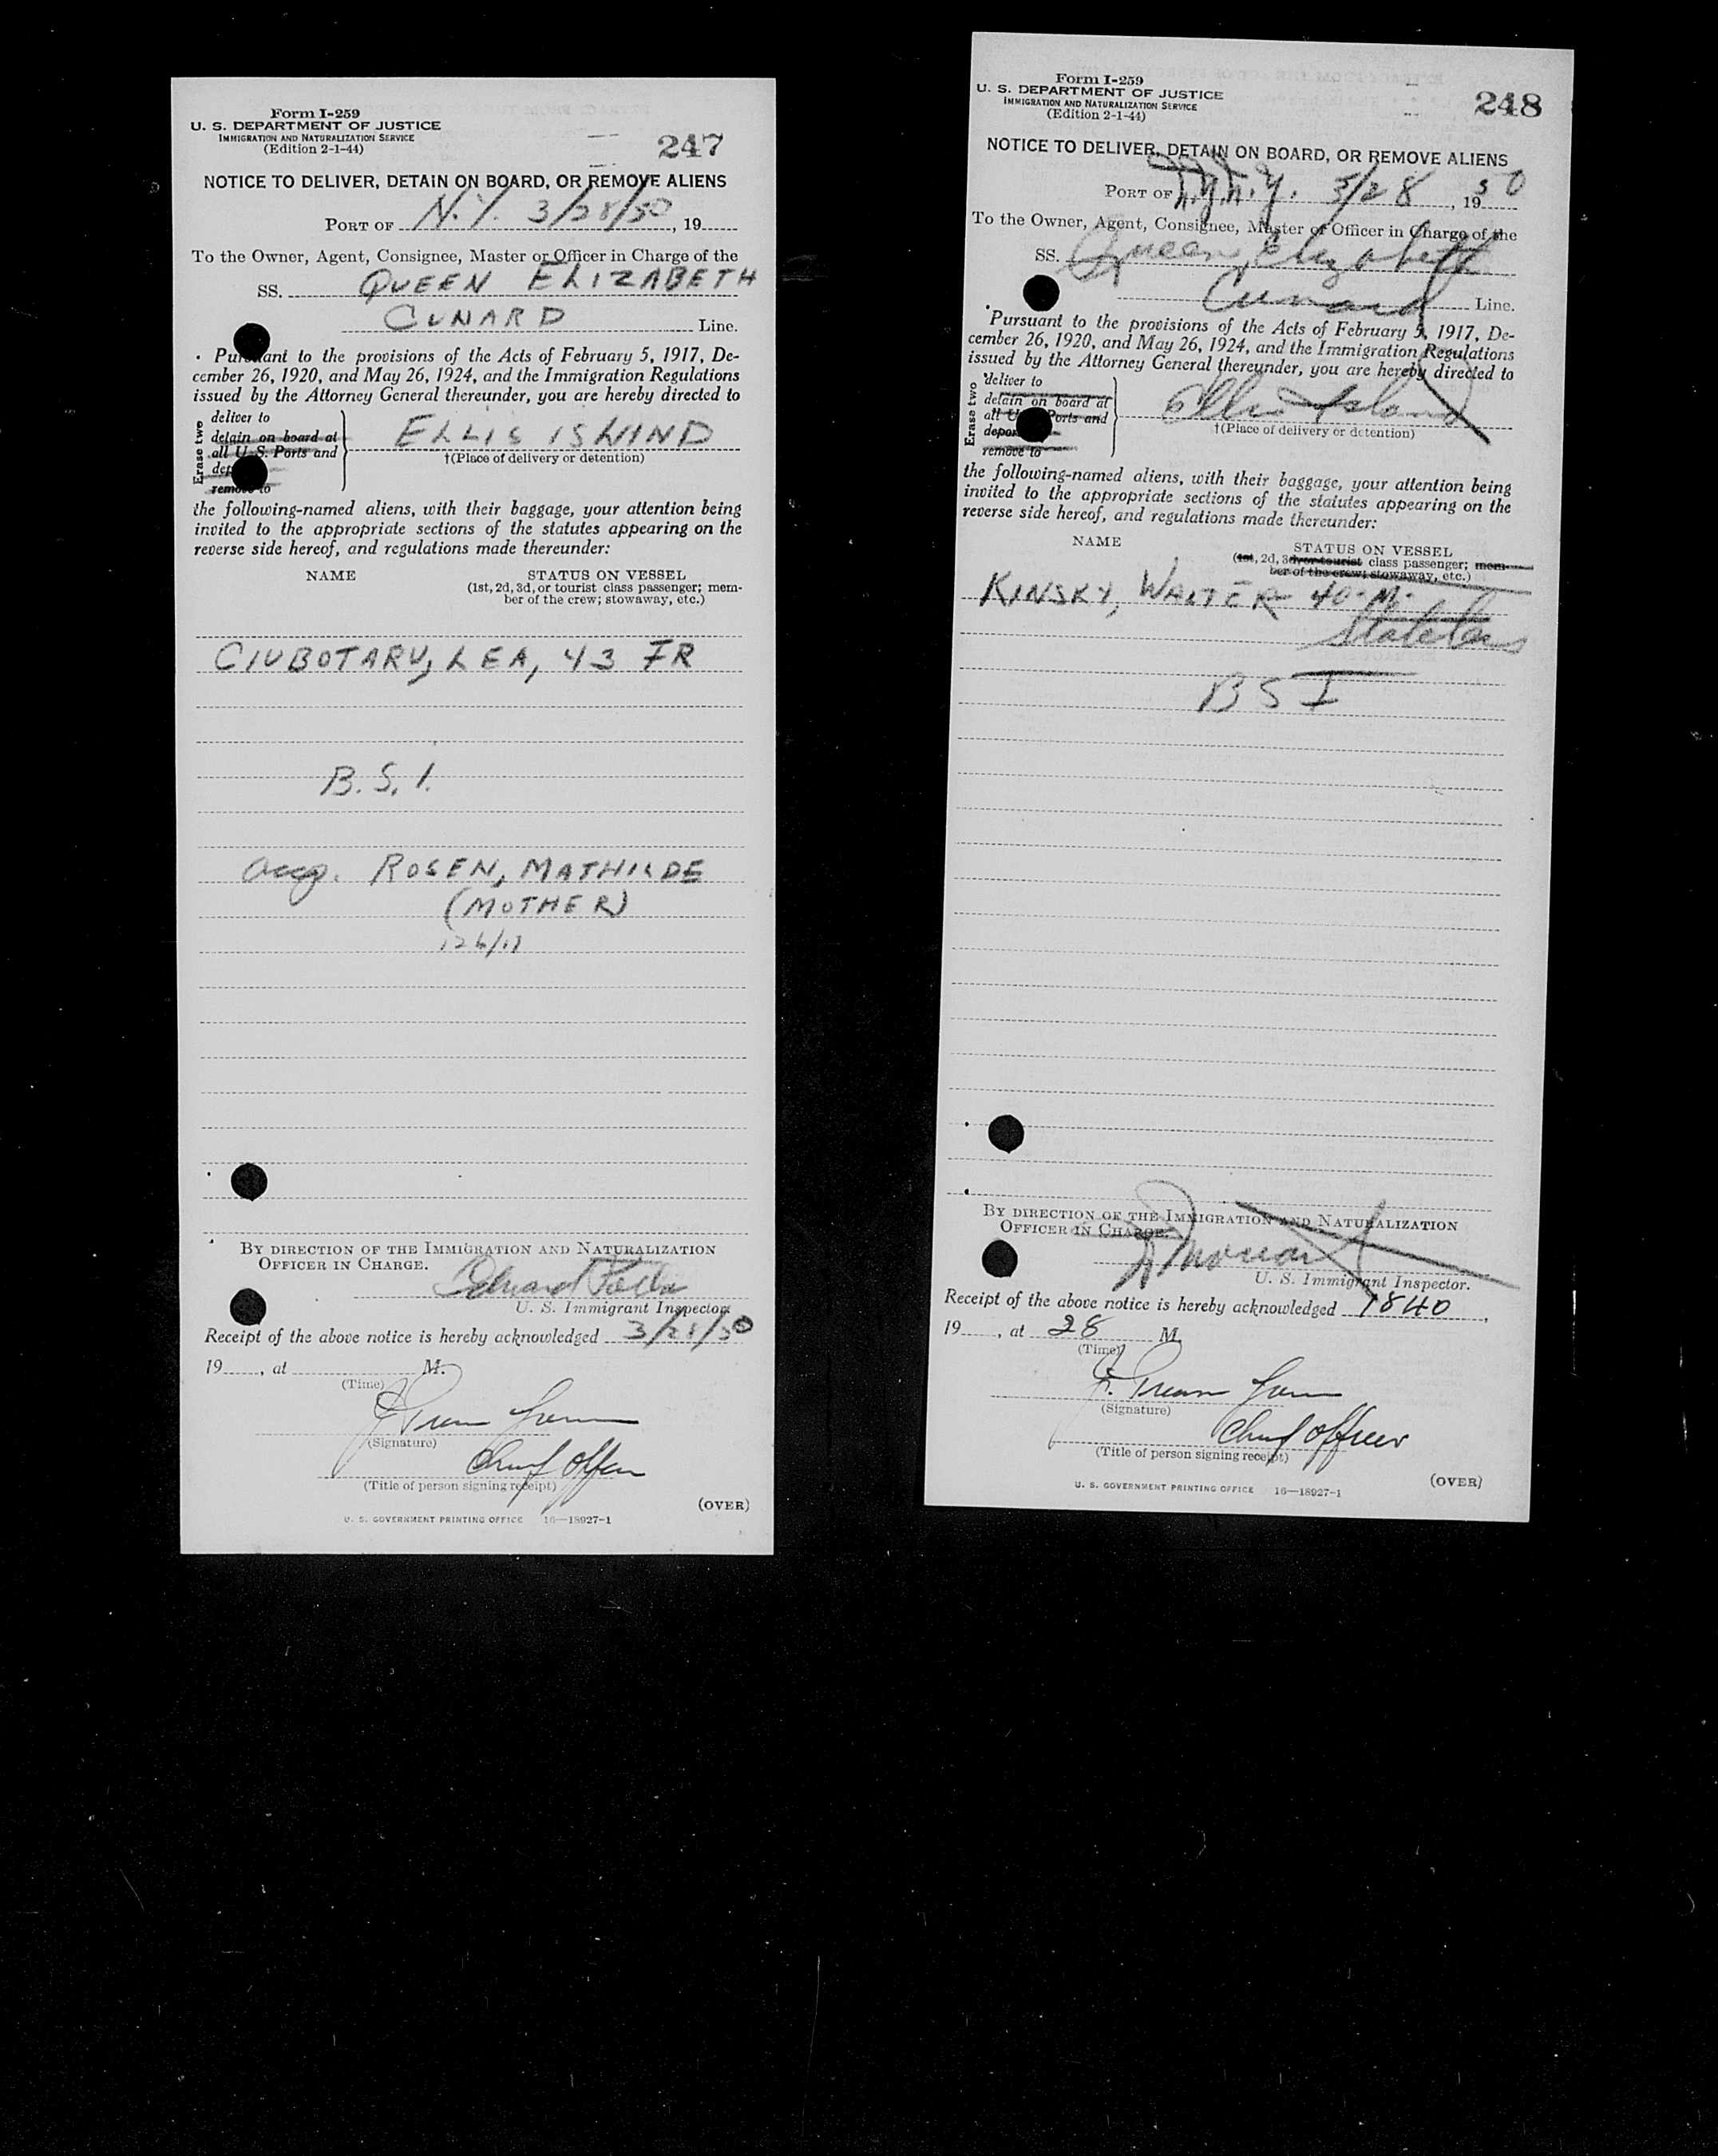 Form I-259
U. S. DEPARTMENT OF JUSTICE
IMMIGRATION AND NATURALIZATION SERVICE
(Edition 2-1-44)
247
NOTICE TO DELIVER, DETAIN ON BOARD, OR REMOVE ALIENS
PORT OF N.Y. 3/28/50, 19
To the Owner, Agent, Consignee, Master or Officer in Charge of the
SS. QUEEN ELIZABETH
CUNARD Line.
Pursuant to the provisions of the Acts of February 5, 1917, De-
cember 26, 1920, and May 26, 1924, and the Immigration Regulations
issued by the Attorney General thereunder, you are hereby directed to
Erase two
deliver to
detain on board at
all U.S. Ports and
remove to
ELLIS ISLAND
†(Place of delivery or detention)
the following-named aliens, with their baggage, your attention being
invited to the appropriate sections of the statutes appearing on the
reverse side hereof, and regulations made thereunder:
NAME
STATUS ON VESSEL
(1st, 2d, 3d, or tourist class passenger; mem-
ber of the crew; stowaway, etc.)
CIUBOTARU, LEA, 43 FR
B.S.I.
accg. ROSEN, MATHILDE
(MOTHER)
BY DIRECTION OF THE IMMIGRATION AND NATURALIZATION
OFFICER IN CHARGE.
Edward
U. S. Immigrant Inspector
Receipt of the above notice is hereby acknowledged 3/28/50
19, at M.
(Time)
(Signature)
Chief Officer
(Title of person signing receipt)
(OVER)
U. S. GOVERNMENT PRINTING OFFICE 16—18927-1
Form I-259
U. S. DEPARTMENT OF JUSTICE
IMMIGRATION AND NATURALIZATION SERVICE
(Edition 2-1-44)
248
NOTICE TO DELIVER, DETAIN ON BOARD, OR REMOVE ALIENS
PORT OF N.Y. 3/28, 1950
To the Owner, Agent, Consignee, Master or Officer in Charge of the
SS. Queen Elizabeth
Cunard Line.
Pursuant to the provisions of the Acts of February 5, 1917, De-
cember 26, 1920, and May 26, 1924, and the Immigration Regulations
issued by the Attorney General thereunder, you are hereby directed to
Erase two
deliver to
detain on board at
all U.S. Ports and
remove to
Ellis Island
†(Place of delivery or detention)
the following-named aliens, with their baggage, your attention being
invited to the appropriate sections of the statutes appearing on the
reverse side hereof, and regulations made thereunder:
NAME
STATUS ON VESSEL
(1st, 2d, 3d, or tourist class passenger; mem-
ber of the crew; stowaway, etc.)
KINSKY, WALTER 40-M-
Stateless
BSI
BY DIRECTION OF THE IMMIGRATION AND NATURALIZATION
OFFICER IN CHARGE.
U. S. Immigrant Inspector.
Receipt of the above notice is hereby acknowledged 1840,
19, at 28 M.
(Time)
(Signature)
Chief Officer
(Title of person signing receipt)
(OVER)
U. S. GOVERNMENT PRINTING OFFICE 16—18927-1